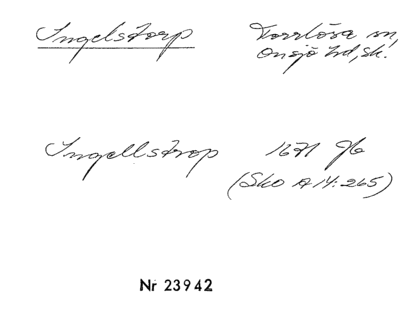 Ingelstorp Torrlösa sn,
Onsjö hd, sk.
Ingellstrop 1671 Jb
(Sko A 14:265)
Nr 23942